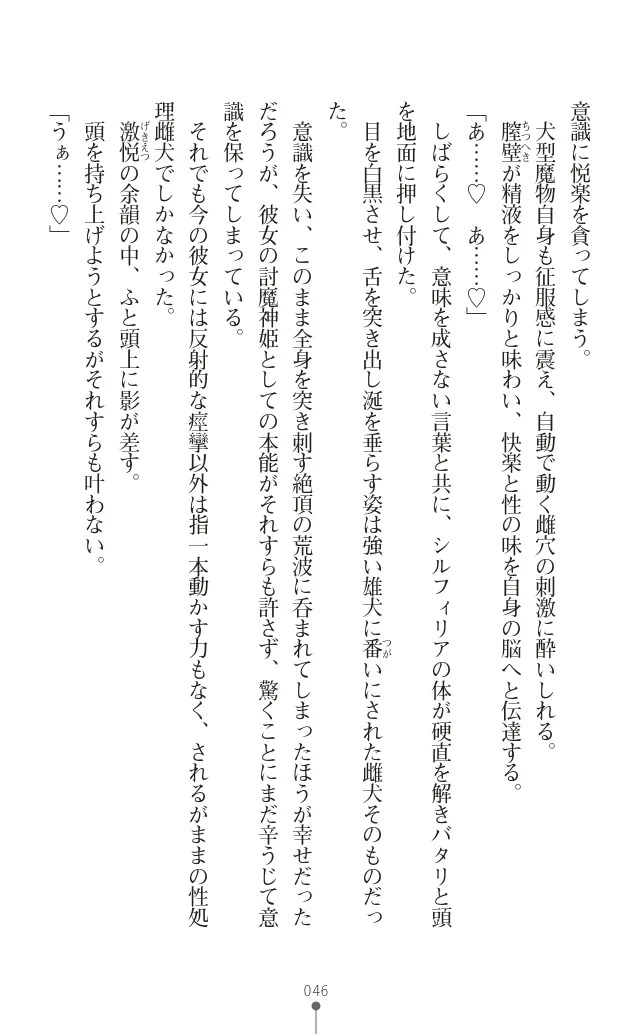 意識に悦楽を貪ってしまう。
犬型魔物自身も征服感に震え、自動で動く雌穴の刺激に酔いしれる。
膣壁が精液をしっかりと味わい、快楽と性の味を自身の脳へと伝達する。
ちつへき
「あ……♡　あ……♡」
しばらくして、意味を成さない言葉と共に、シルフィリアの体が硬直を解きバタリと頭
を地面に押し付けた。
目を白黒させ、舌を突き出し涎を垂らす姿は強い雄犬に番いにされた雌犬そのものだっ
つが
た。
意識を失い、このまま全身を突き刺す絶頂の荒波に呑まれてしまったほうが幸せだった
だろうが、彼女の討魔神姫としての本能がそれすらも許さず、驚くことにまだ辛うじて意
識を保ってしまっている。
それでも今の彼女には反射的な痙攣以外は指一本動かす力もなく、されるがままの性処
理雌犬でしかなかった。
激悦の余韻の中、ふと頭上に影が差す。
げきえつ
頭を持ち上げようとするがそれすらも叶わない。
「うぁ……♡」
046